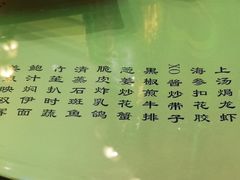 上汤焗龙虾
海参扣花胶
XO酱炒带子
黑椒煎牛排
葱姜炒花蟹
脆皮炸乳鸽
清蒸石斑鱼
竹笙扒时蔬
鲍汁焖伊面